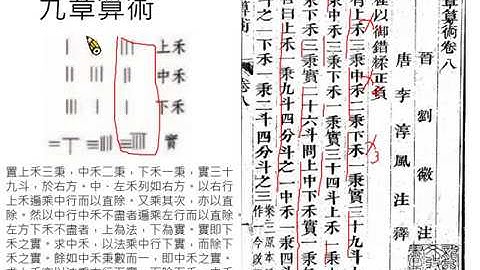 九章算術
上禾
中禾
下禾
實
置上禾三秉，中禾二秉，下禾一秉，實三十
九斗，於右方。中、左禾列如右方。以右行
上禾遍乘中行而以直除。又乘其次，亦以直
除。然以中行中禾不盡者遍乘左行而以直除
左方下禾不盡者，上為法，下為實。實即下
禾之實。求中禾，以法乘中行下實，而除下
禾之實。餘如中禾秉數而一，即中禾之實。
章算術卷八
晉 劉徽 注
唐 李淳風 注釋
以御錯糅正負
有上禾三秉中禾二秉下禾一秉實三十九斗上
禾二秉中禾三秉下禾一秉實三十四斗上禾一
秉中禾二秉下禾三秉實二十六斗問上中下禾實一秉
荅曰上禾一秉九斗四分斗之一中禾一秉
四斗四分斗之一下禾一秉二斗四分斗之三